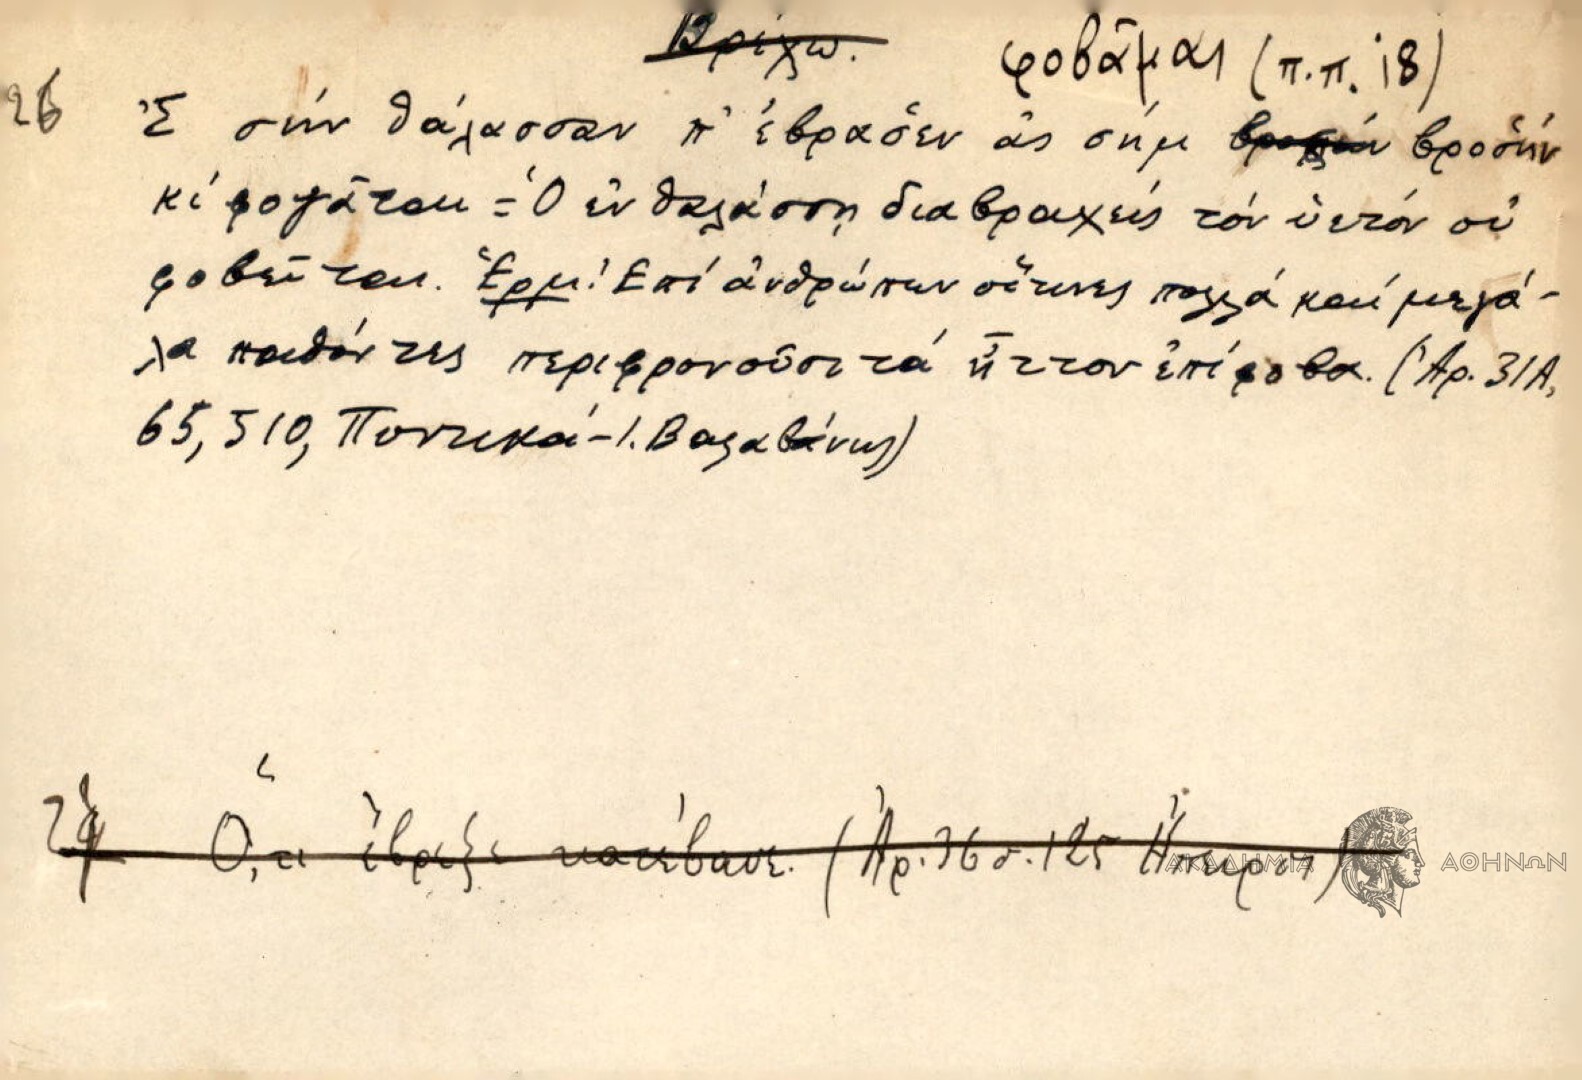 Βρέχω.
φοβᾶμαι (π.π. 18)
26 Ἐ σὴν θάλασσαν π' ἐβρᾶεν ἀς σὴμ βροχὴν
κὶ φογᾶται = Ὁ ἐν θαλάσσῃ διαβραχεὶς τὸν ὑετὸν οὐ
φοβεῖται. Ἑρμ: Ἐπὶ ἀνθρώπων οἵτινες πολλὰ καὶ μεγά-
λα παθόντες περιφρονοῦσι τὰ ἧττον ἐπίφοβα. (Ἀρ. 31Α,
65, 510, Ποντικά - Ι. Βαλαβάνης)
Ὅ,τι ἔβρεξε κατέβασε. (Ἀρ. 36 σ. 125 Ἤπειρος)
ΑΚΑΔΗΜΙΑ ΑΘΗΝΩΝ